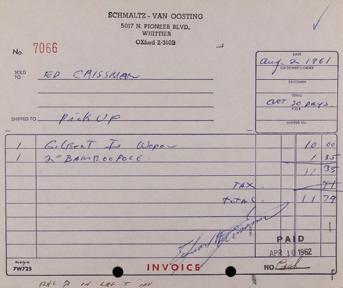 SCHMALTZ - VAN OOSTING
5017 N. PIONEER BLVD.
WHITTIER
OXford 2-3808
No. 7066
DATE
Aug 2 1961
CUSTOMER'S ORDER
SOLD TO ED CRISSMAN
SALESMAN
TERMS
NET 30 DAYS.
SHIPPED TO Pick UP
SHIPPED VIA
1 10 00
1 2" BAMBOO POLE. 1 35
11 35
TAX 44
TOTAL 11 79
PAID
APR 10 1962
7W725 INVOICE NO.